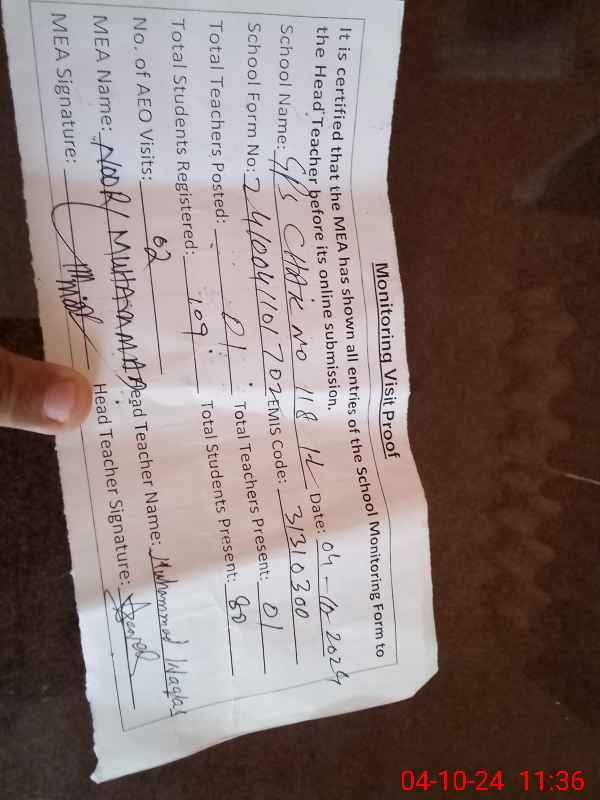 Monitoring Visit Proof
It is certified that the MEA has shown all entries of the School Monitoring Form to
the Head Teacher before its online submission.
School Name: GPS CHAK NO 118 12L Date: 04-10-2024
School Form No: 2410041101702 EMIS Code: 31310300
Total Teachers Posted: 01 Total Teachers Present: 01
Total Students Registered: 109 Total Students Present: 80
No. of AEO Visits: 02
MEA Name: NOOR MUHAMMAD Head Teacher Name: Muhammad Waqas
MEA Signature: Head Teacher Signature:
04-10-24 11:36